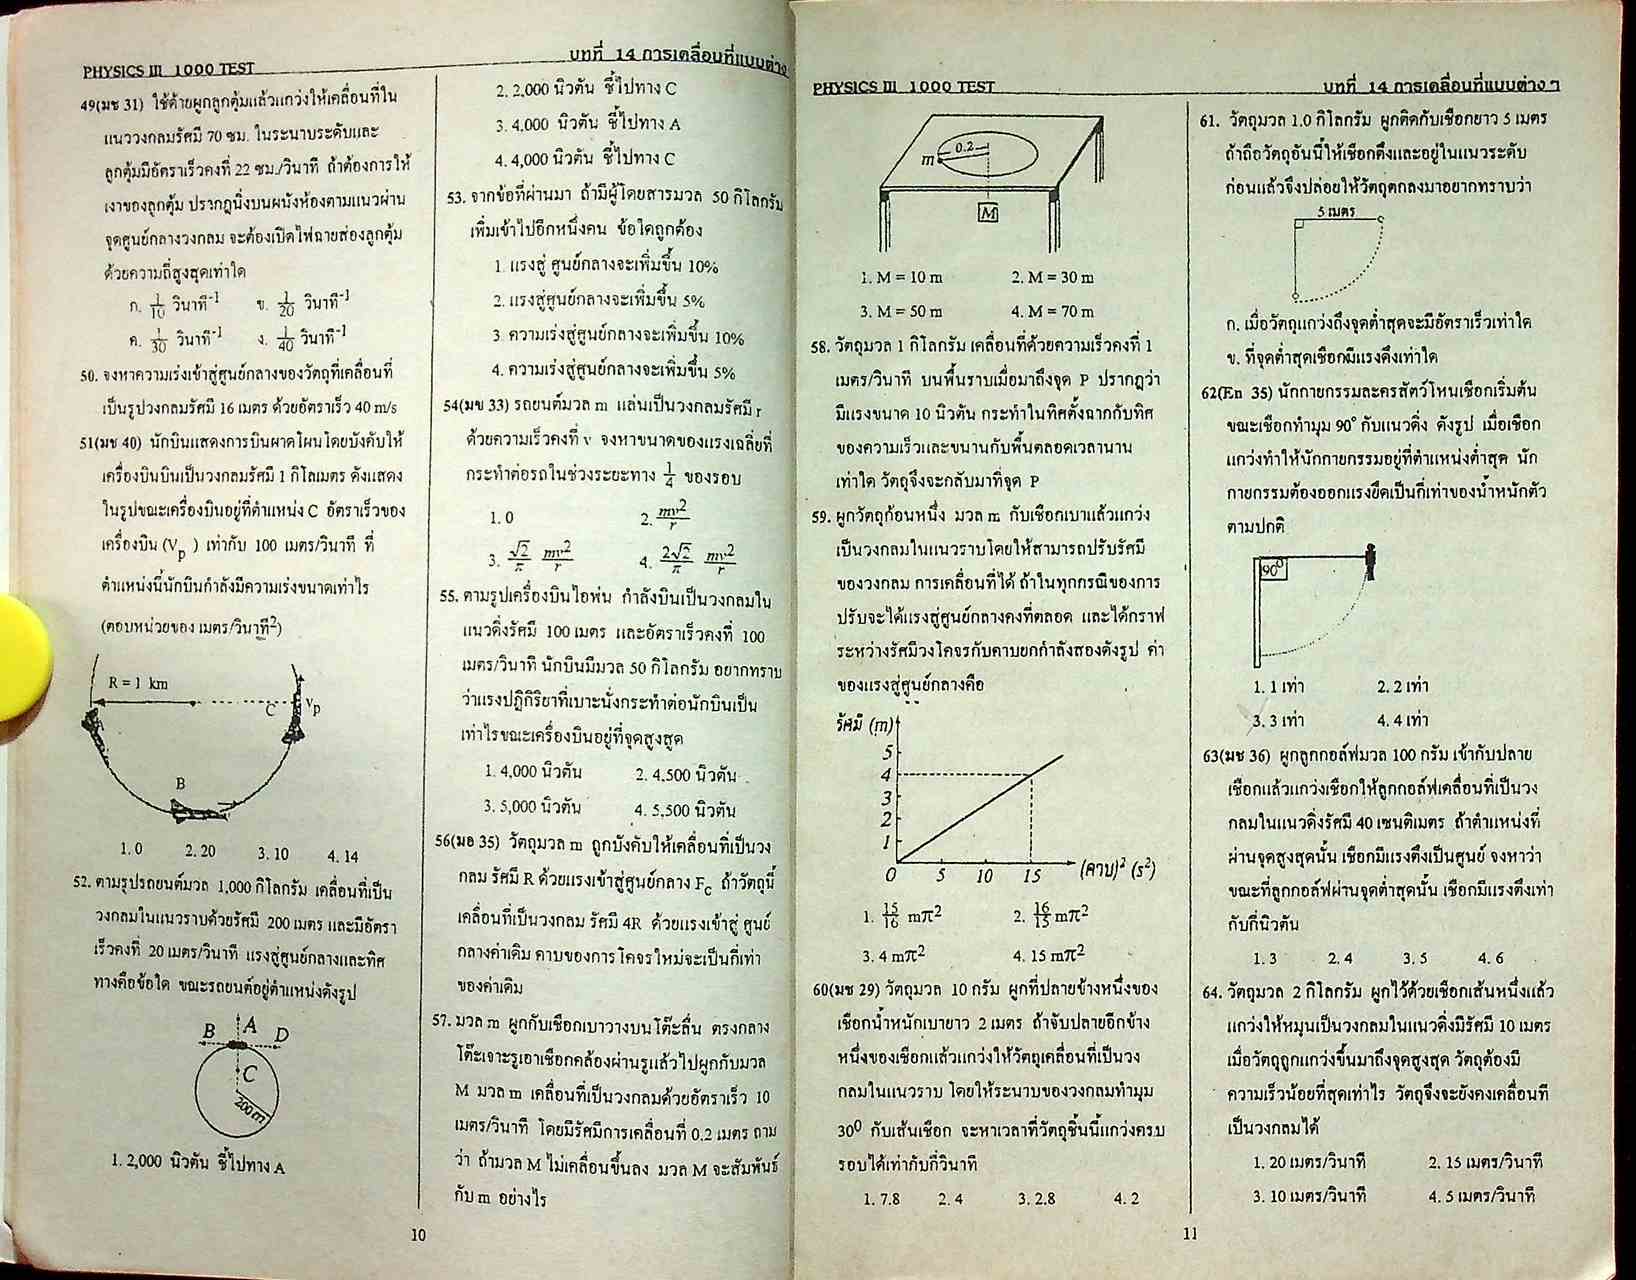 PHYSICS III 1000 TEST
บทที่ 14 การเคลื่อนที่แบบต่าง
49(มช 31) ใช้ด้ายผูกลูกตุ้มแล้วแกว่งให้เคลื่อนที่ใน
แนววงกลมรัศมี 70 ซม. ในระนาบระดับและ
ลูกตุ้มมีอัตราเร็วคงที่ 22 ซม./วินาที ถ้าต้องการให้
เงาของลูกตุ้ม ปรากฎนิ่งบนผนังห้องตามแนวผ่าน
จุดศูนย์กลางวงกลม จะต้องเปิดไฟฉายส่องลูกตุ้ม
ด้วยความถี่สูงสุดเท่าใด
ก. 1/10 วินาที⁻¹ ข. 1/20 วินาที⁻¹
ค. 1/30 วินาที⁻¹ ง. 1/40 วินาที⁻¹
50. จงหาความเร่งเข้าสู่ศูนย์กลางของวัตถุที่เคลื่อนที่
เป็นรูปวงกลมรัศมี 16 เมตร ด้วยอัตราเร็ว 40 m/s
51(มช 40) นักบินแสดงการบินผาดโผนโดยบังคับให้
เครื่องบินบินเป็นวงกลมรัศมี 1 กิโลเมตร ดังแสดง
ในรูปขณะเครื่องบินอยู่ที่ตำแหน่ง C อัตราเร็วของ
เครื่องบิน (Vp ) เท่ากับ 100 เมตร/วินาที ที่
ตำแหน่งนี้นักบินกำลังมีความเร่งขนาดเท่าไร
(ตอบหน่วยของ เมตร/วินาที²)
R = 1 km
C Vp
A
B
1. 0 2. 20 3. 10 4. 14
52. ตามรูปรถยนต์มวล 1,000 กิโลกรัม เคลื่อนที่เป็น
วงกลมในแนวราบด้วยรัศมี 200 เมตร และมีอัตรา
เร็วคงที่ 20 เมตร/วินาที แรงสู่ศูนย์กลางและทิศ
ทางคือข้อใด ขณะรถยนต์อยู่ตำแหน่งดังรูป
B A D
C
200 m
1. 2,000 นิวตัน ชี้ไปทาง A
2. 2,000 นิวตัน ชี้ไปทาง C
3. 4,000 นิวตัน ชี้ไปทาง A
4. 4,000 นิวตัน ชี้ไปทาง C
53. จากข้อที่ผ่านมา ถ้ามีผู้โดยสารมวล 50 กิโลกรัม
เพิ่มเข้าไปอีกหนึ่งคน ข้อใดถูกต้อง
1. แรงสู่ ศูนย์กลางจะเพิ่มขึ้น 10%
2. แรงสู่ศูนย์กลางจะเพิ่มขึ้น 5%
3. ความเร่งสู่ศูนย์กลางจะเพิ่มขึ้น 10%
4. ความเร่งสู่ศูนย์กลางจะเพิ่มขึ้น 5%
54(มข 33) รถยนต์มวล m แล่นเป็นวงกลมรัศมี r
ด้วยความเร็วคงที่ v จงหาขนาดของแรงเฉลี่ยที่
กระทำต่อรถในช่วงระยะทาง 1/4 ของรอบ
1. 0 2. mv²/r
3. √2/π mv²/r 4. 2√2/π mv²/r
55. ตามรูปเครื่องบินไอพ่น กำลังบินเป็นวงกลมใน
แนวดิ่งรัศมี 100 เมตร และอัตราเร็วคงที่ 100
เมตร/วินาที นักบินมีมวล 50 กิโลกรัม อยากทราบ
ว่าแรงปฏิกิริยาที่เบาะนั่งกระทำต่อนักบินเป็น
เท่าไรขณะเครื่องบินอยู่ที่จุดสูงสุด
1. 4,000 นิวตัน 2. 4,500 นิวตัน
3. 5,000 นิวตัน 4. 5,500 นิวตัน
56(มอ 35) วัตถุมวล m ถูกบังคับให้เคลื่อนที่เป็นวง
กลม รัศมี R ด้วยแรงเข้าสู่ศูนย์กลาง Fc ถ้าวัตถุนี้
เคลื่อนที่เป็นวงกลม รัศมี 4R ด้วยแรงเข้าสู่ ศูนย์
กลางค่าเดิม คาบของการโคจรใหม่จะเป็นกี่เท่า
ของค่าเดิม
57. มวล m ผูกกับเชือกเบาวางบนโต๊ะลื่น ตรงกลาง
โต๊ะเจาะรูเอาเชือกคล้องผ่านรูแล้วไปผูกกับมวล
M มวล m เคลื่อนที่เป็นวงกลมด้วยอัตราเร็ว 10
เมตร/วินาที โดยมีรัศมีการเคลื่อนที่ 0.2 เมตร ถาม
ว่า ถ้ามวล M ไม่เคลื่อนขึ้นลง มวล M จะสัมพันธ์
กับ m อย่างไร
10
PHYSICS III 1000 TEST
บทที่ 14 การเคลื่อนที่แบบต่าง ๆ
m 0.2
M
1. M = 10 m 2. M = 30 m
3. M = 50 m 4. M = 70 m
58. วัตถุมวล 1 กิโลกรัม เคลื่อนที่ด้วยความเร็วคงที่ 1
เมตร/วินาที บนพื้นราบเมื่อมาถึงจุด P ปรากฎว่า
มีแรงขนาด 10 นิวตัน กระทำในทิศตั้งฉากกับทิศ
ของความเร็วและขนานกับพื้นตลอดเวลานาน
เท่าใด วัตถุจึงจะกลับมาที่จุด P
59. ผูกวัตถุก้อนหนึ่ง มวล m กับเชือกเบาแล้วแกว่ง
เป็นวงกลมในแนวราบโดยให้สามารถปรับรัศมี
ของวงกลม การเคลื่อนที่ได้ ถ้าในทุกกรณีของการ
ปรับจะได้แรงสู่ศูนย์กลางคงที่ตลอด และได้กราฟ
ระหว่างรัศมีวงโคจรกับคาบยกกำลังสองดังรูป ค่า
ของแรงสู่ศูนย์กลางคือ
รัศมี (m)
5
4
3
2
1
0 5 10 15 (คาบ)² (s²)
1. 15/16 mπ² 2. 16/15 mπ²
3. 4 mπ² 4. 15 mπ²
60(มช 29) วัตถุมวล 10 กรัม ผูกที่ปลายข้างหนึ่งของ
เชือกน้ำหนักเบายาว 2 เมตร ถ้าจับปลายอีกข้าง
หนึ่งของเชือกแล้วแกว่งให้วัตถุเคลื่อนที่เป็นวง
กลมในแนวราบ โดยให้ระนาบของวงกลมทำมุม
30⁰ กับเส้นเชือก จะหาเวลาที่วัตถุชิ้นนี้แกว่งครบ
รอบได้เท่ากับกี่วินาที
1. 7.8 2. 4 3. 2.8 4. 2
61. วัตถุมวล 1.0 กิโลกรัม ผูกติดกับเชือกยาว 5 เมตร
ถ้าถือวัตถุอันนี้ให้เชือกตึงและอยู่ในแนวระดับ
ก่อนแล้วจึงปล่อยให้วัตถุตกลงมาอยากทราบว่า
5 เมตร
ก. เมื่อวัตถุแกว่งถึงจุดต่ำสุดจะมีอัตราเร็วเท่าใด
ข. ที่จุดต่ำสุดเชือกมีแรงตึงเท่าใด
62(En 35) นักกายกรรมละครสัตว์โหนเชือกเริ่มต้น
ขณะเชือกทำมุม 90° กับแนวดิ่ง ดังรูป เมื่อเชือก
แกว่งทำให้นักกายกรรมอยู่ที่ตำแหน่งต่ำสุด นัก
กายกรรมต้องออกแรงยึดเป็นกี่เท่าของน้ำหนักตัว
ตามปกติ
90⁰
1. 1 เท่า 2. 2 เท่า
3. 3 เท่า 4. 4 เท่า
63(มช 36) ผูกลูกกอล์ฟมวล 100 กรัม เข้ากับปลาย
เชือกแล้วแกว่งเชือกให้ลูกกอล์ฟเคลื่อนที่เป็นวง
กลมในแนวดิ่งรัศมี 40 เซนติเมตร ถ้าตำแหน่งที่
ผ่านจุดสูงสุดนั้น เชือกมีแรงตึงเป็นศูนย์ จงหาว่า
ขณะที่ลูกกอล์ฟผ่านจุดต่ำสุดนั้น เชือกมีแรงตึงเท่า
กับกี่นิวตัน
1. 3 2. 4 3. 5 4. 6
64. วัตถุมวล 2 กิโลกรัม ผูกไว้ด้วยเชือกเส้นหนึ่งแล้ว
แกว่งให้หมุนเป็นวงกลมในแนวดิ่งมีรัศมี 10 เมตร
เมื่อวัตถุถูกแกว่งขึ้นมาถึงจุดสูงสุด วัตถุต้องมี
ความเร็วน้อยที่สุดเท่าไร วัตถุจึงจะยังคงเคลื่อนที่
เป็นวงกลมได้
1. 20 เมตร/วินาที 2. 15 เมตร/วินาที
3. 10 เมตร/วินาที 4. 5 เมตร/วินาที
11